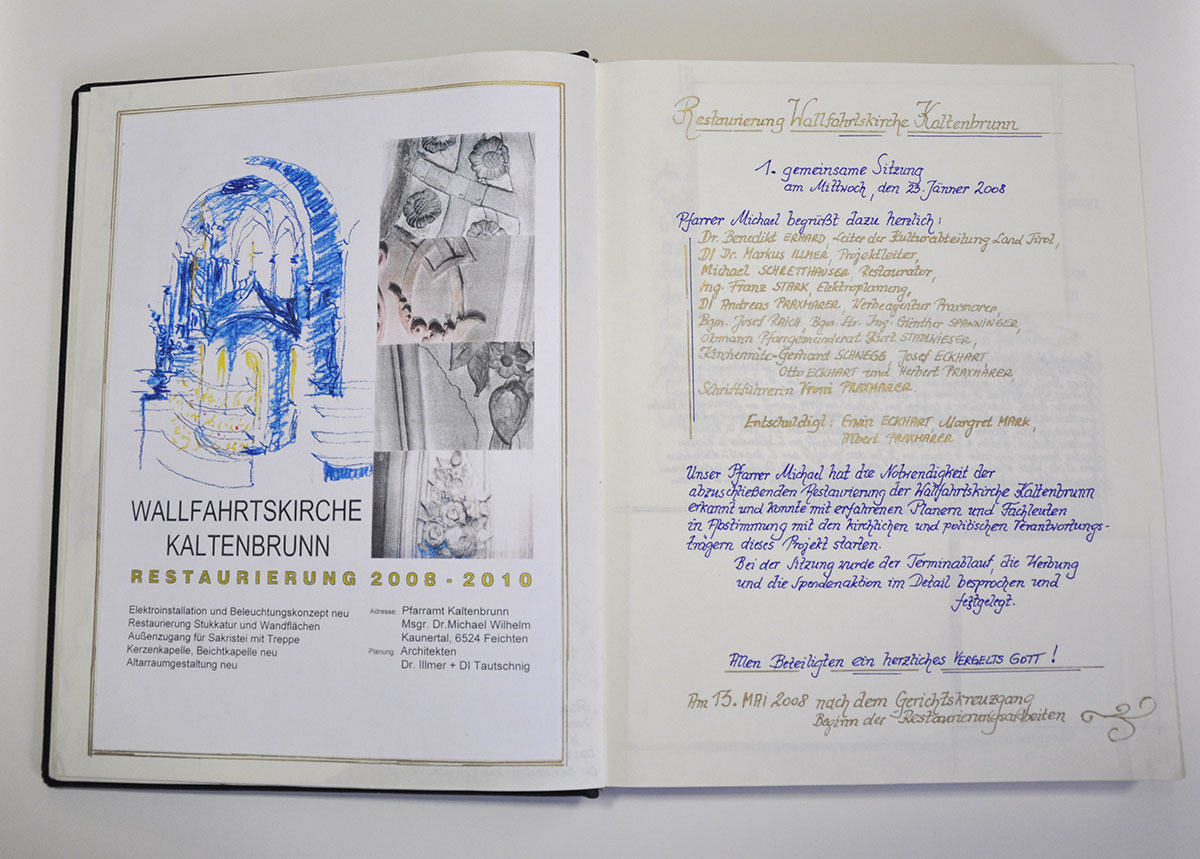 WALLFAHRTSKIRCHE
KALTENBRUNN
RESTAURIERUNG 2008 - 2010
Elektroinstallation und Beleuchtungskonzept neu
Restaurierung Stukkatur und Wandflächen
Außenzugang für Sakristei mit Treppe
Kerzenkapelle, Beichtkapelle neu
Altarraumgestaltung neu
Adresse: Pfarramt Kaltenbrunn
Msgr. Dr.Michael Wilhelm
Kaunertal, 6524 Feichten
Planung: Architekten
Dr. Illmer + DI Tautschnig
Restaurierung Wallfahrtskirche Kaltenbrunn
1. gemeinsame Sitzung
am Mittwoch, den 23. Jänner 2008
Pfarrer Michael begrüßt dazu herzlich:
Dr. Benedikt ERHARD, Leiter der Kulturabteilung Land Tirol,
DI Dr. Markus ILLMER, Projektleiter,
Michael SCHRETTHAUSER Restaurator,
Ing. Franz STARK, Elektroplanung,
DI Andreas PRAXMARER, Werbeagentur Praxmarer,
Bgm. Josef RAICH, Bgm. Str. Ing. Günther SPANNINGER,
Obmann Pfarrgemeinderat Kurt STADLWIESER,
Kirchenräte-Gerhard SCHNEGG Josef ECKHART
Otto ECKHART und Herbert PRAXMARER,
Schriftführerin Vroni PRAXMARER.
Entschuldigt: Erwin ECKHART Margret MARK,
Albert PRAXMARER
Unser Pfarrer Michael hat die Notwendigkeit der
abzuschließenden Restaurierung der Wallfahrtskirche Kaltenbrunn
erkannt und konnte mit erfahrenen Planern und Fachleuten
in Abstimmung mit den kirchlichen und politischen Verantwortungs-
trägern dieses Projekt starten.
Bei der Sitzung wurde der Terminablauf, die Werbung
und die Spendenaktion im Detail besprochen und
festgelegt.
Allen Beteiligten ein herzliches VERGELTS GOTT!
Am 13. MAI 2008 nach dem Gerichtskreuzgang
Beginn der Restaurierungsarbeiten